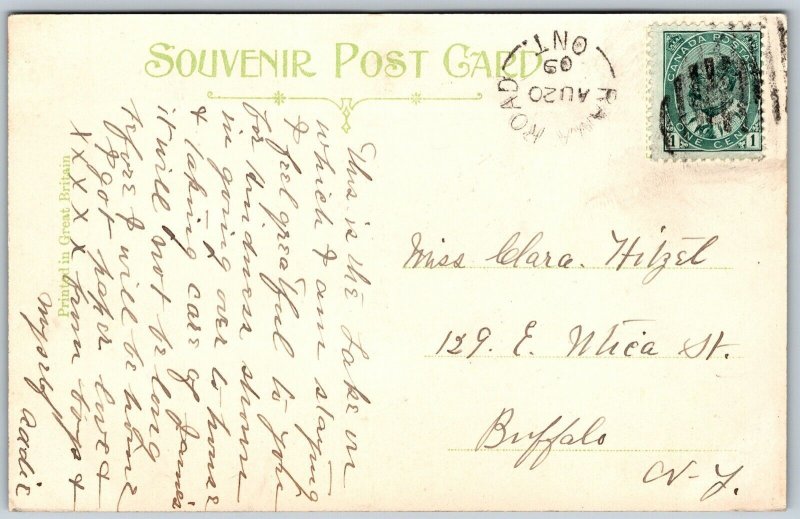 SOUVENIR POST CARD
RAMA ROAD
AU 20
09
ONT.
CANADA POSTAGE
1 ONE CENT 1
Miss Clara. Hitzel
129. E. Utica St.
Buffalo
N-Y.
This is the Lake on
which I am staying
& feel greatful to you
for kindness shown
in going over to house
& taking care of James
it will not be long
before I will be home
I got paper love &
X X X X X from boys &
myself Addie
Printed in Great Britain